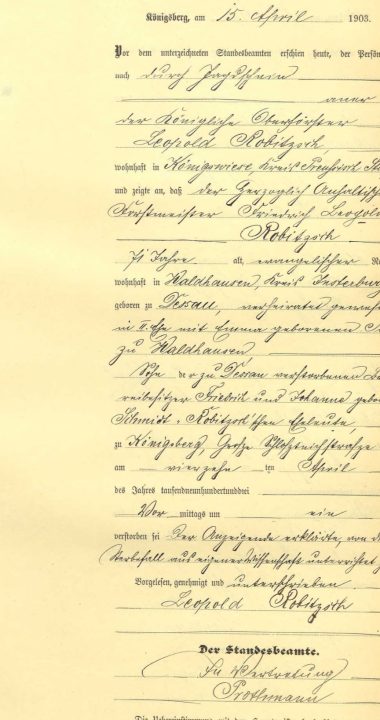 Königsberg, am 15. April 1903.
Vor dem unterzeichneten Standesbeamten erschien heute, der Persön
nach durch Jagdschein
aner
der Königliche Oberförster
Leopold Robitzsch,
wohnhaft in Königswiese, Kreis Preußisch Sta
und zeigte an, daß der Herzoglich Anhaltisch
Forstmeister Friedrich Leopold
Robitzsch
71 Jahre alt, evangelischer R
wohnhaft in Waldhausen, Kreis Insterburg
geboren zu Dessau, verheiratet gewese
in II. Ehe mit Emma geborenen
zu Waldhausen,
Sohn der zu Dessau verstorbenen
Friedrich und Johanna gebor
Schmidt - Robitzsch'schen Eheleute,
zu Königsberg, Große Schloßteichstraße
am vierzehnten April
des Jahres tausendneunhundertunddrei
Vormittags um ein
verstorben sei. Der Anzeigende erklärte, von d
Sterbefall aus eigener Wissenschaft unterrichtet
Vorgelesen, genehmigt und unterschrieben
Leopold Robitzsch
Der Standesbeamte.
In Vertretung
Prothmann
Die Uebereinstimmung mit dem